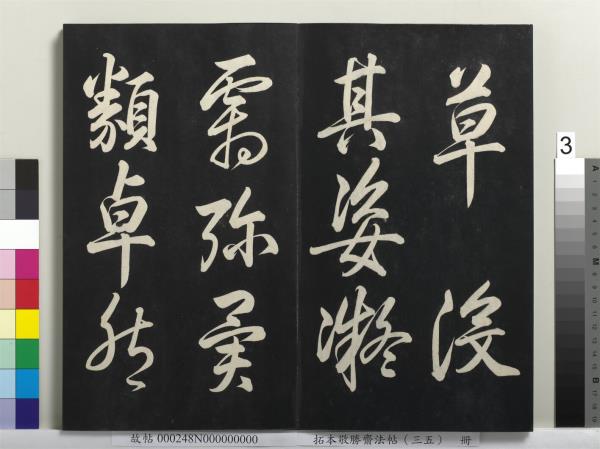 草沒
其姿凝
霜殄異
類卓然
故帖 000248N000000000
拓本敬勝齋法帖（三五） 冊
3
A
M
B